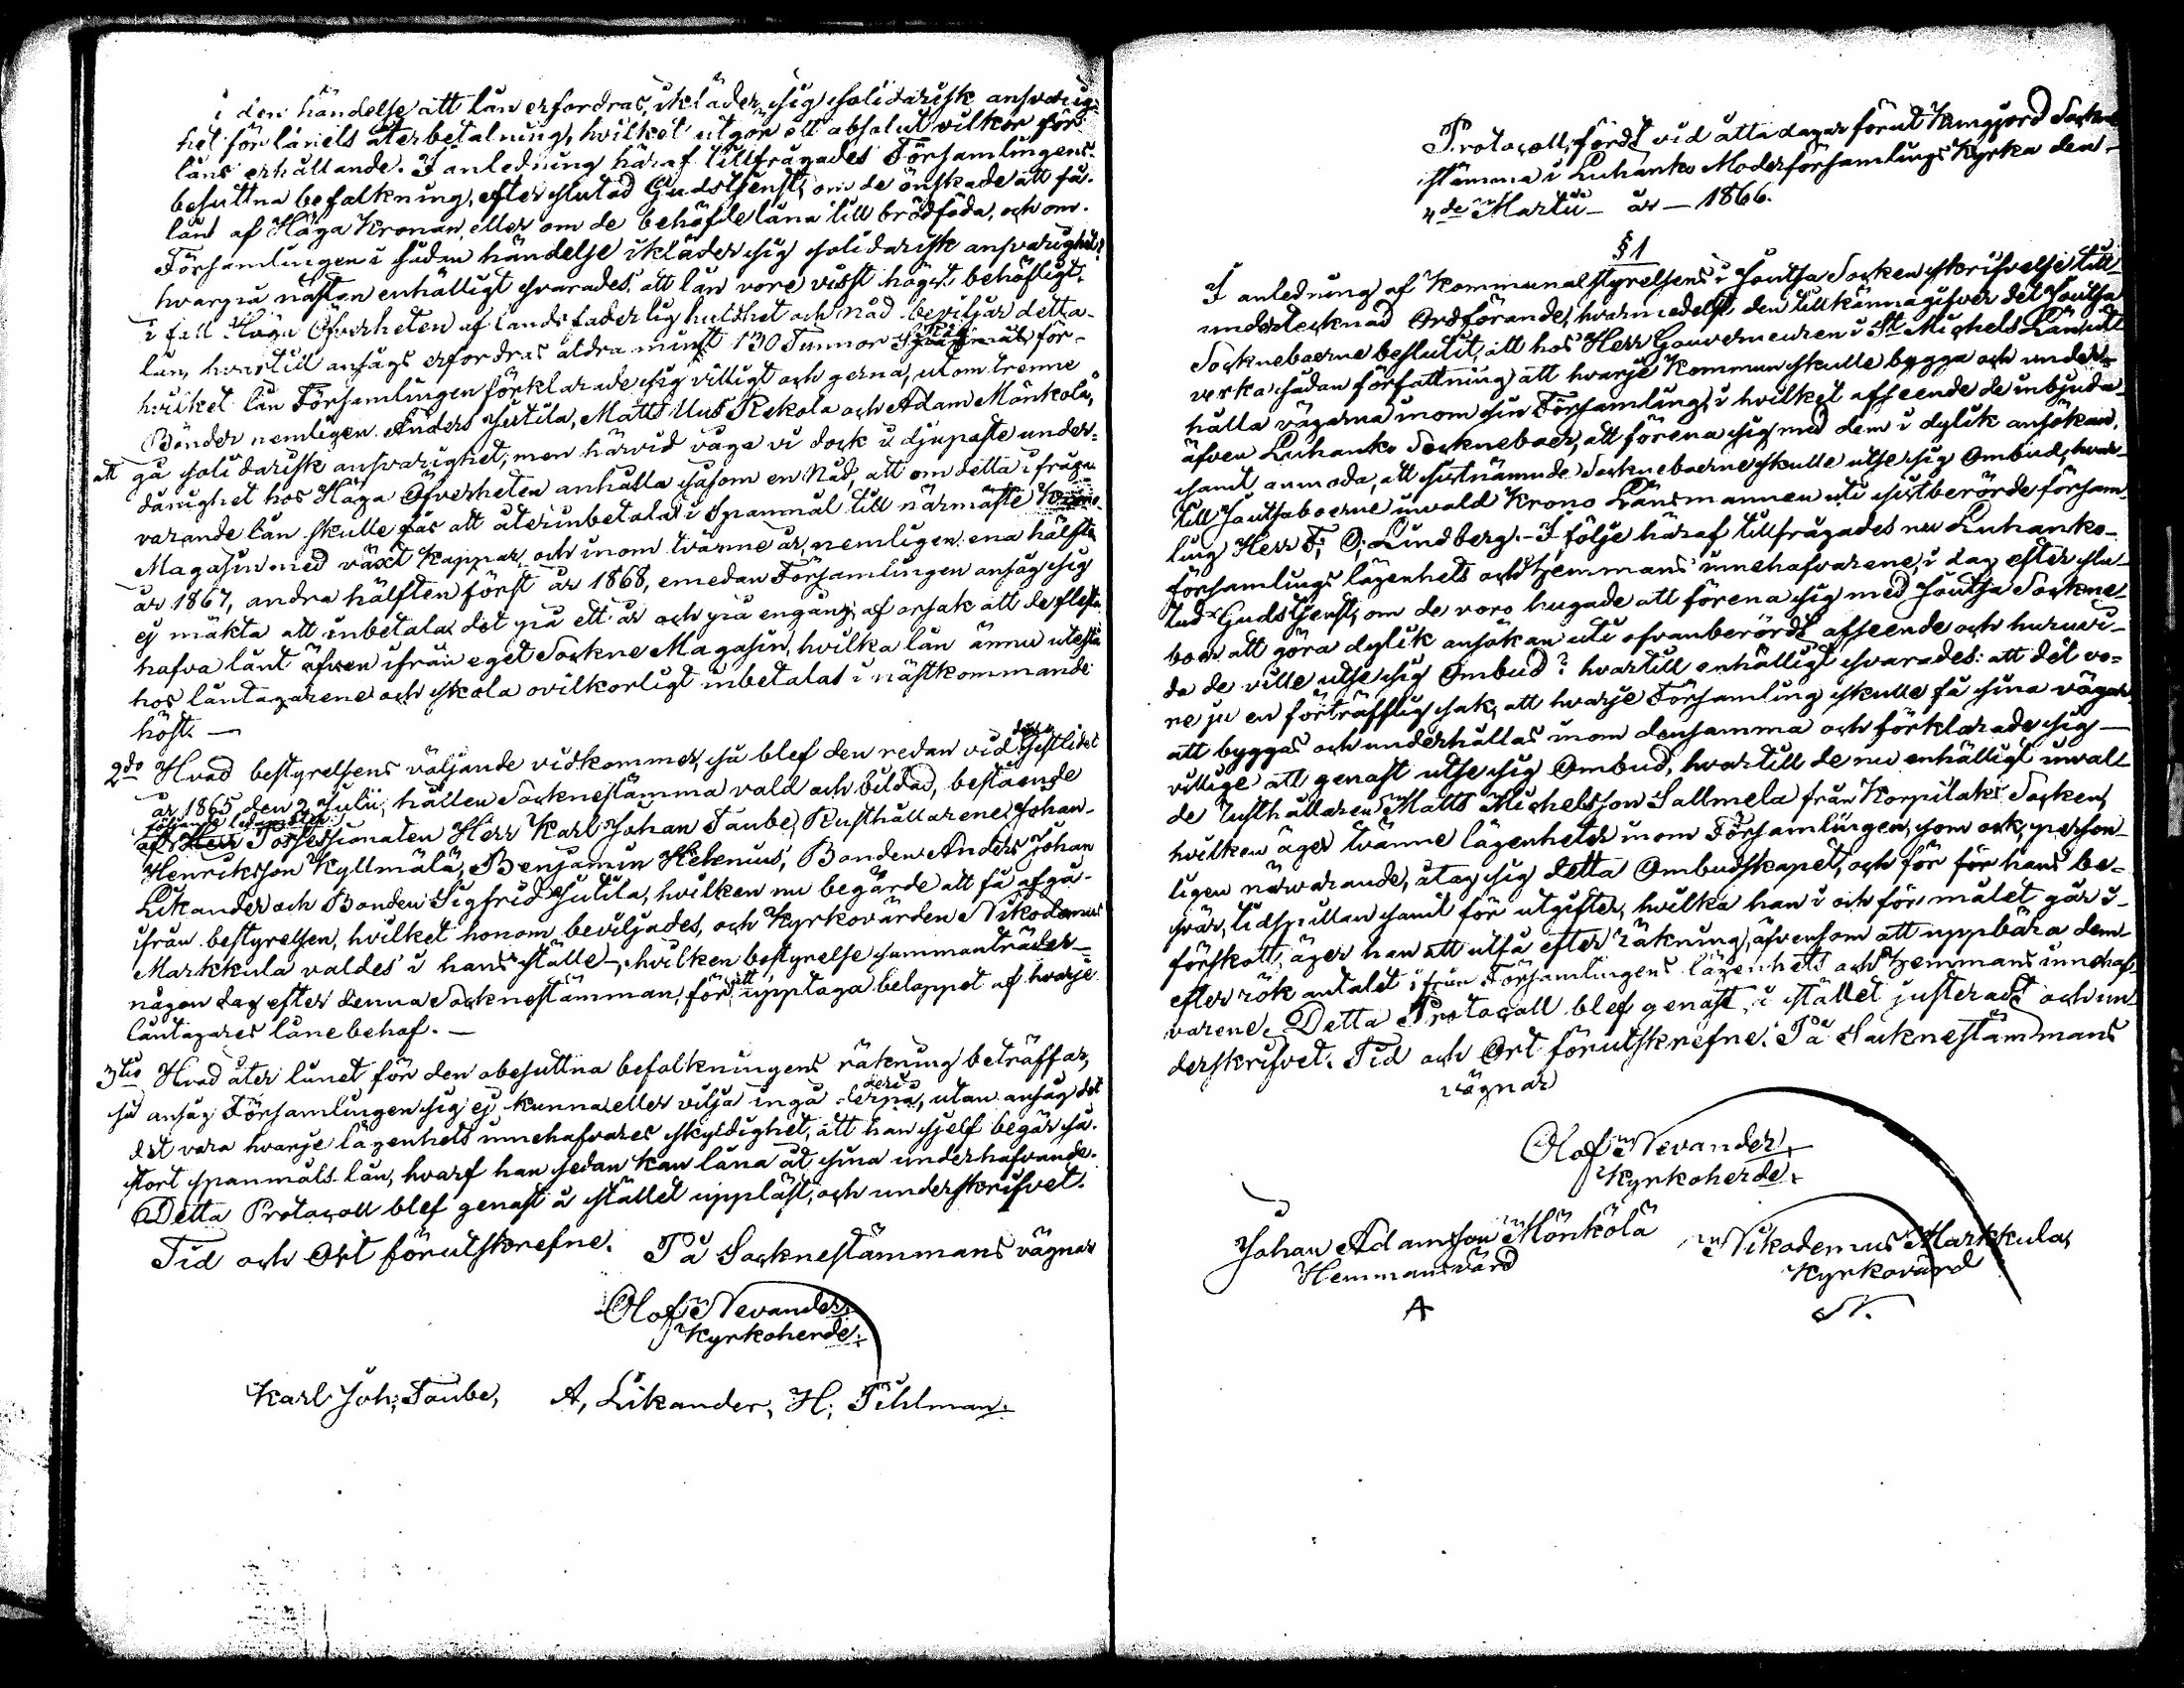 i den händelse att lån erfordras, ikläder sig solidarisk ansvarig-
het för lånets återbetalning, hvilket utgör ett absolut vilkor för
låns erhållande. I anledning häraf tillfrågades Församlingens
besuttna befolkning, efter slutad Gudstjenst, om de önskade att få
lån af Höga Kronan, eller om de behöfde låna till brödföda, och om
Församlingen i sådan händelse ikläder sig solidarisk ansvarighet?
hvarpå nästan enhälligt svarades att lån vore visst högst behöfligt,
i fall Höga Öfverheten af landsfaderlig huldhet och nåd beviljar detta
lån, hvartill ansågs erfordras aldra minst 130 Tunnor Spanmål för
hvilket lån Församlingen förklarade sig villigt och gerna, utom trenne
Bönder nemligen Anders Jutila, Matts Uus Rekola och Adam Mönkölä,
att gå solidarisk ansvarighet, men härvid våga vi dock i djupaste under-
dånighet hos Höga Öfverheten anhålla såsom en Nåd, att om detta ifråga-
varande lån skulle fås att återinbetalas i Spanmål till närmaste Krono
Magasin med växt Kappar, och inom tvänne år, nemligen ena hälften
år 1867, andra hälften först år 1868, emedan Församlingen ansåg sig
ej mäkta att inbetala det på ett år och på engång, af orsak att de flesta
hafva lånt äfven ifrån eget Sockne Magasin, hvilka lån ännu utestå
hos låntagarene och skola ovilkorligt inbetalas i nästkommande
höst. —
2do Hvad bestyrelsens väljande vidkommer, så blef den redan vid sistlidet
år 1865 den 2 Julii, hållen Socknestämma vald och bildad, bestående
följande ledamöter:
af Herr Possessionaten Herr Karl Johan Taube, Rusthållarene Johan
Henriksson Kyllmälä, Benjamin Helenius, Bonden Anders Johan
Likander och Bonden Sigfrid Jutila, hvilken nu begärde att få afgå
ifrån bestyrelsen, hvilket honom beviljades, och Kyrkovärden Nikodemus
Markkula valdes i hans ställe, hvilken bestyrelse sammanträder
någon dag efter denna Socknestämman, för att upptaga beloppet af hvarje
låntagares lånebehof. —
3tio Hvad åter lånet för den obesuttna befolkningens räkning beträffar,
så ansåg Församlingen sig ej kunna eller vilja ingå derpå, utan ansåg det
det vara hvarje lägenhets innehafvares skyldighet, att han sjelf begär så
stort spanmåls lån, hvaraf han sedan kan låna åt sina underhafvande.
Detta Protocoll blef genast i stället uppläst, och underskrifvet.
Tid och Ort förutskrefne. På Socknestämmans vägnar
Olof Nevander,
Kyrkoherde.
Karl Joh: Taube, A, Likander, H; Pihlman.
Protocoll, fördt vid åtta dagar förut kungjord Sockne
stämma i Luhanko Moderförsamlings Kyrka den
4de Martii år 1866.
§ 1
I anledning af Kommunalstyrelsens i Joutsa Socken skrifvelse till
undertecknad Ordförande, hvarmedelst den tillkännagifver det Joutsa
Sockneboerne beslutit, att hos Herr Gouverneuren i St Michels Län, ut-
verka sådan författning att hvarje Kommun skulle bygga och under-
hålla vägarna inom sin Församling, i hvilket afseende de inbjuda
äfven Luhanko Socknebоer, att förena sig med dem i dylik ansökan,
samt anmoda, att sistnämnde Socknebоerne skulle utse sig Ombud, hvar-
till Joutsaboerne invald Krono Länsmannen uti sistberörde försam-
ling Herr F, O, Lindberg. I följe häraf tillfrågades nu Luhanko-
församlings lägenhets och hemmans innehafvarene, i dag efter slu-
tad Gudstjenst, om de voro hugade att förena sig med Joutsa Sockne-
boer att göra dylik ansökan uti ofvanberördt afseende och huruvi-
da de ville utse sig Ombud? hvartill enhälligt svarades: att det vo-
re ju en förträfflig sak, att hvarje Församling skulle få sina vägar
att byggas och underhållas inom densamma och förklarade sig
villige att genast utse sig Ombud, hvartill de nu enhälligt inval-
de rusthållaren Matts Michelsson Sallmela från Korpilaks Socken,
hvilken äger tvänne lägenheter inom Församlingen, som ock, person-
ligen närvarande, åtog sig detta Ombudskapet, och för för hans be-
svär, tidspillan samt för utgifter, hvilka han i och för målet går i
förskott, äger han att utfå efter räkning, äfvensom att uppbära dem
efter rök antalet ifrån Församlingens lägenhets och hemmans innehaf-
varene. Detta Protocoll blef genast i stället justeradt och un-
derskrifvet. Tid och Ort förutskrefne. På Socknestämmans
vägnar
Olof Nevander,
Kyrkoherde.
Johan Adamsson Mönkölä
Hemmansvärd
A
Nikodemus Markkula,
Kyrkovärd
N.